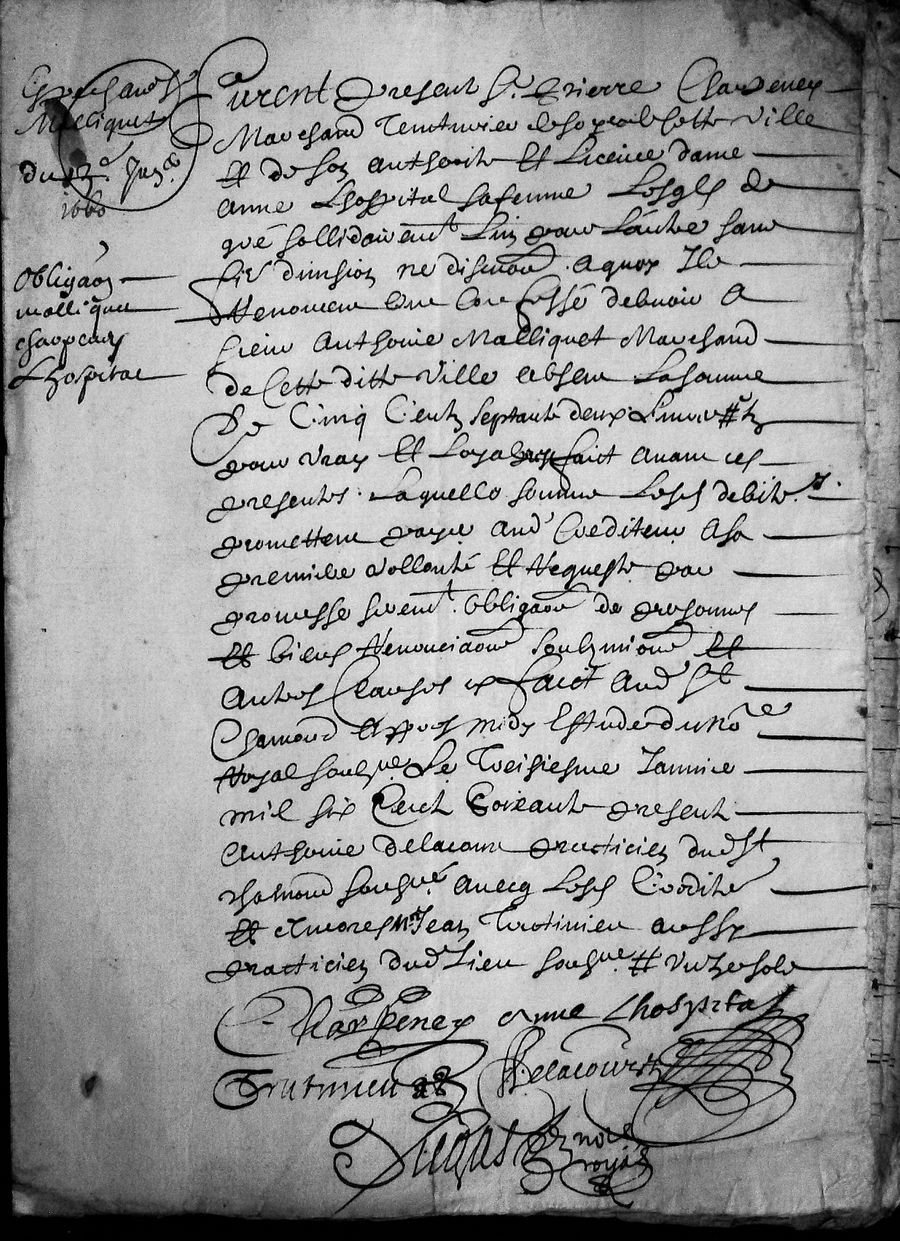 Malliquet
du 13e. Janr.
1660
Obligaon
malliquet
charpeney
Lhospital
Furent present Sr. Pierre Charpeney
Marchand cette Ville
Et de son authorite Et Licence dame
anne Lhospital sa femme Lesqls de
gré sollidairemt Lun pour Lautre sans
division ne discution aquoy Ils
Renoncent Ont Confessé debvoir A
sieur Anthoine Malliquet Marchand
de Cette ditte Ville absent La somme
De Cinq Cents septante deux Livres #
pour vray Et Loyal faict avant ces
presentes. Laquelle somme Lesds debiteurs
promettent payer aud Crediteur A sa
premiere vollonté Et Requeste par
promesse sermt. Obligaon de personnes
Et biens Renonciaons soubmions Et
autres Clauses et faict Aud St
Chamond Appres midy Estude du Nore
Royal soubsné Le Treisiesme Janvier
mil six Cent Soixante presents
Anthoine delacour practicien dud St
chamond soubsné avecq Lesds
Et Encores Mr Jean aussy
practicien dud Lieu soubsné #
Charpeney anne Lhospital
Delacourt
Dugas nore
royal